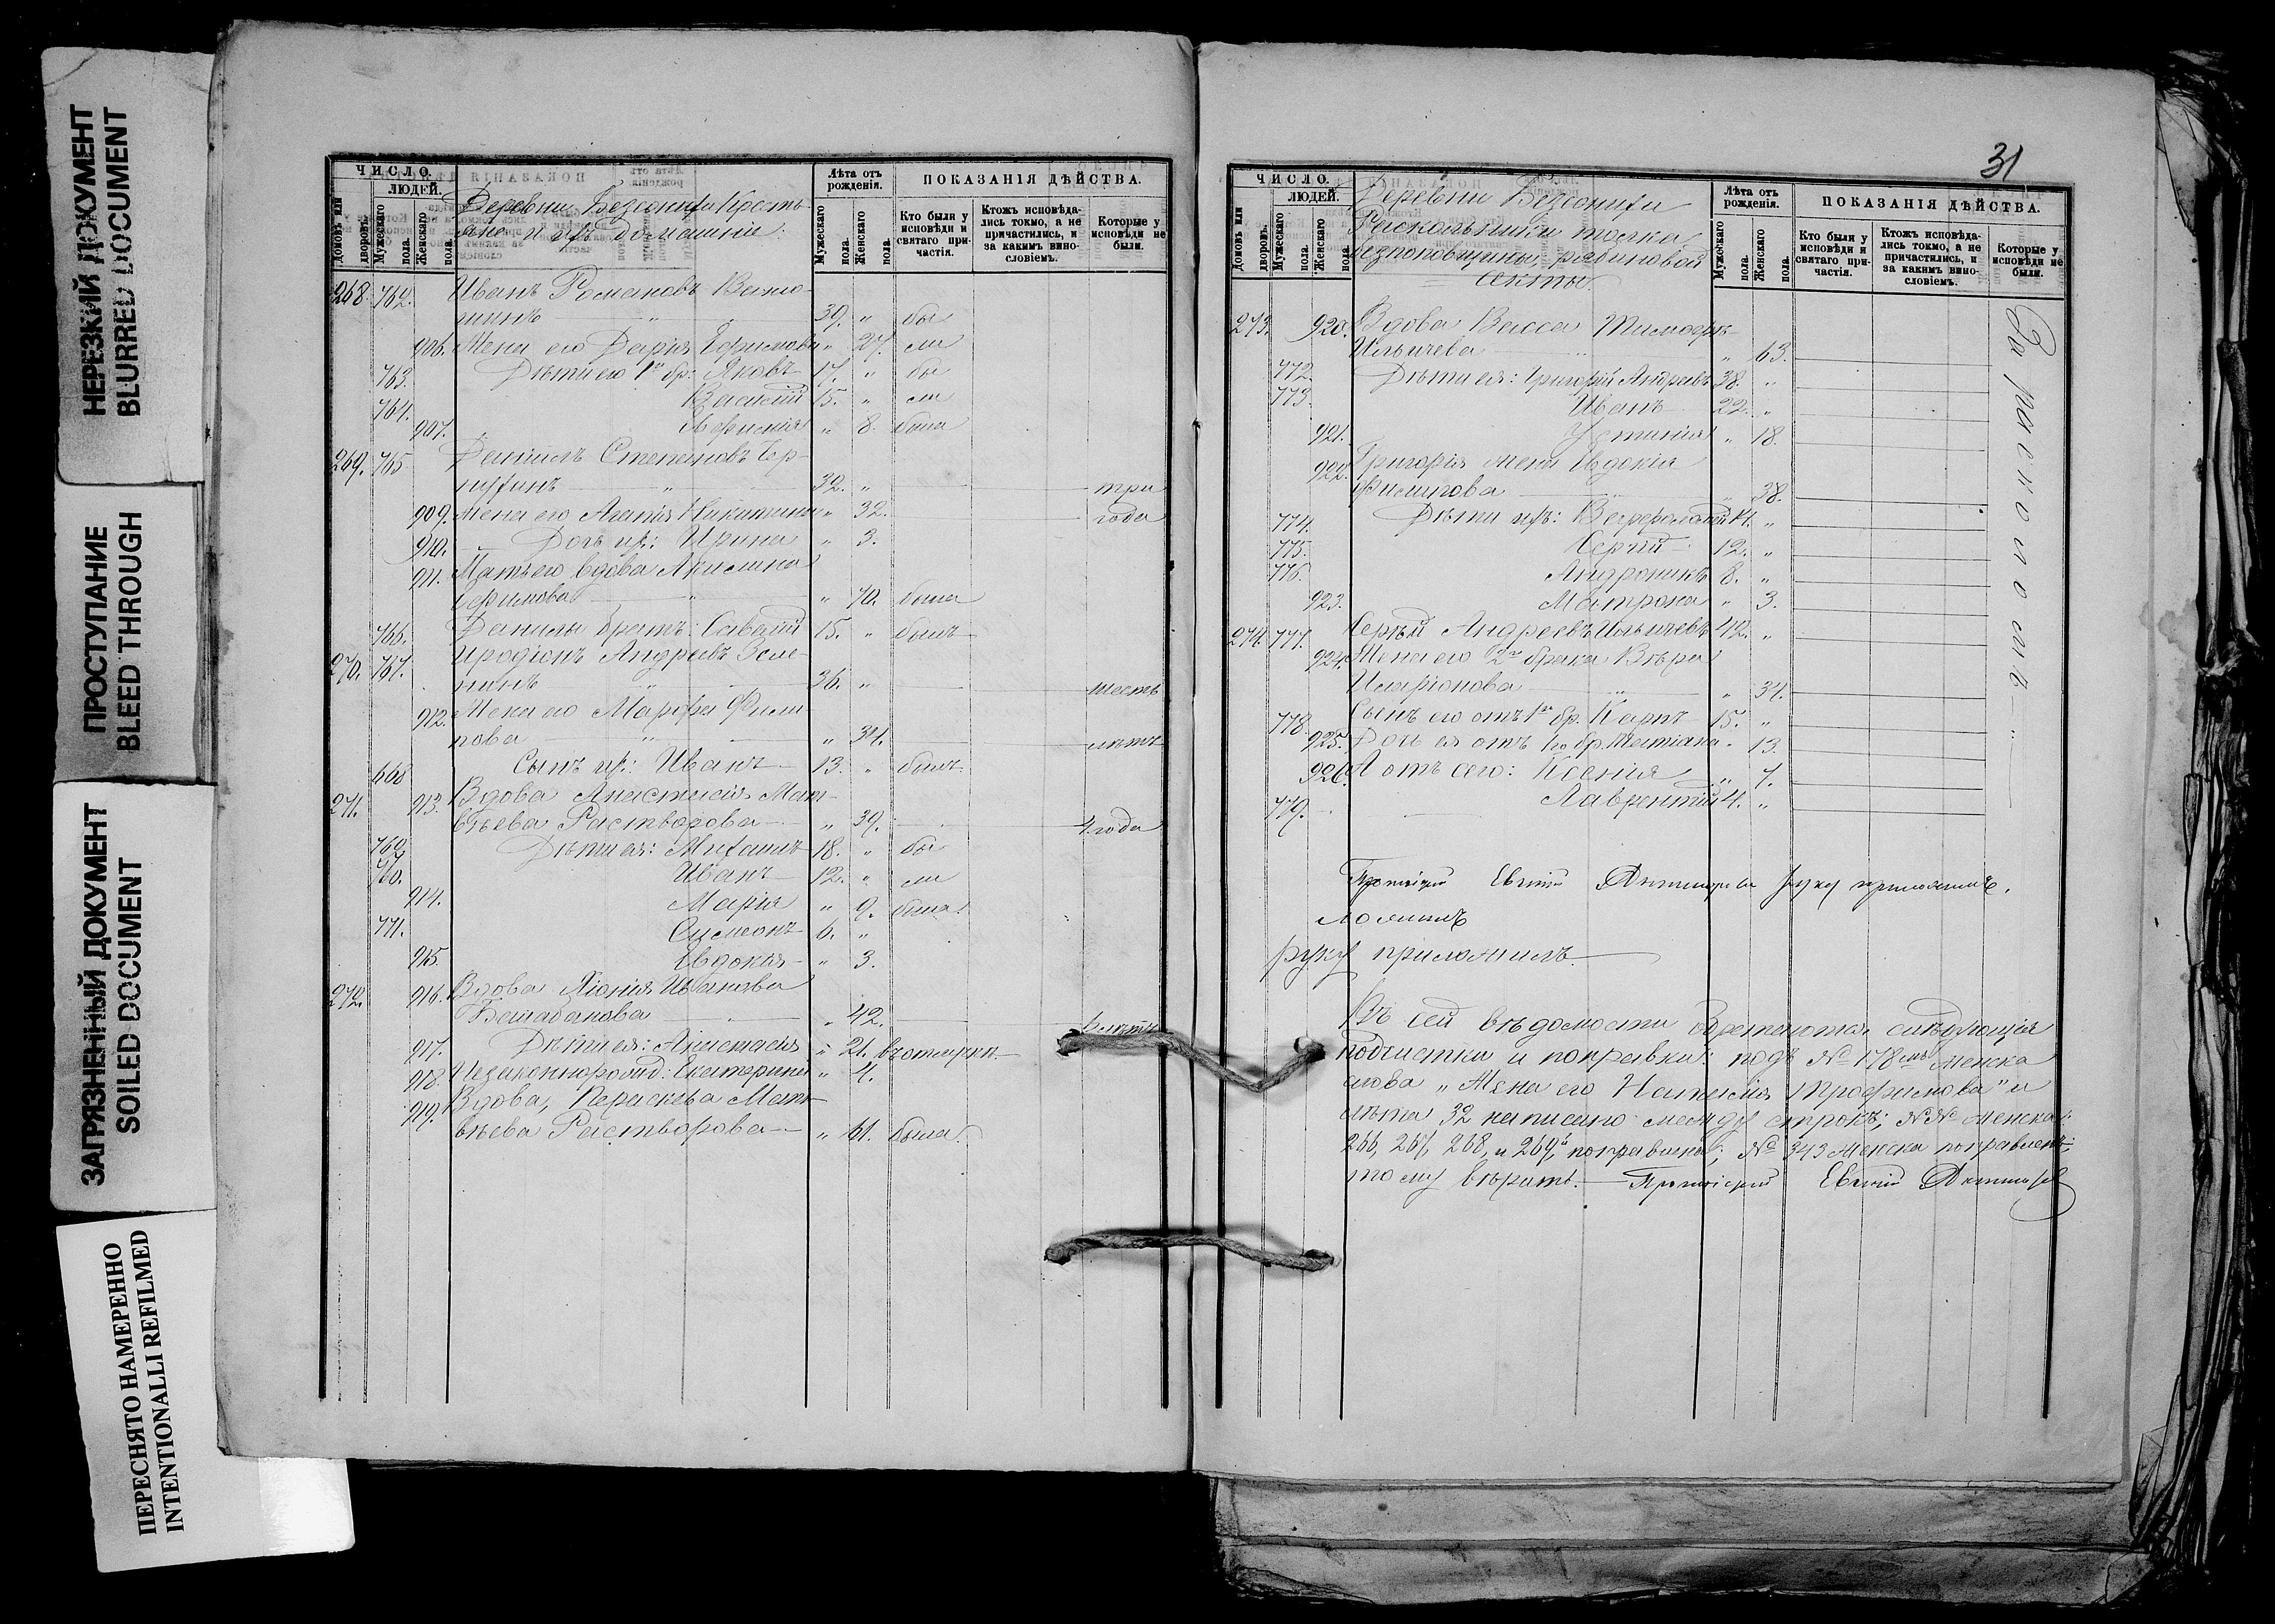 НЕРЕЗКИЙ ДОКУМЕНТ
BLURRED DOCUMENT
ПРОСТУПАНИЕ
BLEED THROUGH
ЗАГРЯЗНЕННЫЙ ДОКУМЕНТ
SOILED DOCUMENT
ПЕРЕСНЯТО НАМЕРЕННО
INTENTIONALLI REFILMED
ЧИСЛО.
ЛЮДЕЙ.
Домовъ или дворовъ.
Мужескаго пола.
Женскаго пола.
Деревни Безсонки Кресть-
яне и ихъ домашніе.
Лѣта отъ рожденія.
Мужскаго пола.
Женскаго пола.
ПОКАЗАНІЯ ДѢЙСТВА.
Кто были у исповѣди и святаго при-частія.
Ктожъ исповѣда-лись токмо, а не причастились, и за какимъ вино-словіемъ.
Которые у исповѣди не были.
268. 762. Иванъ Романовъ
39. " бы
906. Жена его Дарія Ефимова " 27. ли
763. Дѣти его 1го бр: Яковъ 17. " бы
764. Василій 15. " ли
907. " 8. была
269. 765 Даніилъ Степановъ Чер-
32. " три
909. Жена его Агапія Никитина " 32. года
910. Дочь их: Ирина " 3.
911. Мать его вдова Акилина
Ефимова " 70. была
766. Данилы братъ: Савватій 15. " былъ
270. 767. Иродіонъ Андреевъ
36. " шесть
912. Жена его Марфа Фили-
пова " 34. лѣтъ
668 Сынъ их: Иванъ 13. " былъ
271. 913. Вдова Анастасія Мат-
вѣева Растворова " 39. 4 года
769. Дѣти ея: Михаилъ 18. " бы
770. Иванъ 12. " ли
914. Марія " 9. была
771. Симеонъ 6. "
915. Евдокія " 3.
272. 916. Вдова Ксенія Иванова
" 42.
917. Дѣти ея: Анастасія " 21. въ отлучкѣ
918. Незаконнорожд: Екатерина " 4.
919. Вдова, Параскева Мат-
вѣева Растворова " 61. была.
31
ЧИСЛО.
ЛЮДЕЙ.
Домовъ или дворовъ.
Мужескаго пола.
Женскаго пола.
Деревни Безсонки
Раскольники толка
безпоповщины, рябиновой
секты.
Лѣта отъ рожденія.
Мужскаго пола.
Женскаго пола.
ПОКАЗАНІЯ ДѢЙСТВА.
Кто были у исповѣди и святаго при-частія.
Ктожъ исповѣда-лись токмо, а не причастились, и за какимъ вино-словіемъ.
Которые у исповѣди не были.
273. 920. Вдова Васса Тимофѣ-
Ильичева " 63.
772. Дѣти ея: Григорій Андреевъ 38. "
773. Иванъ 22. "
921. Устинія " 18.
922. Григорія жена Евдокія
Филипова " 38.
774. Дѣти ихъ: 14. "
775. Сергій 12. "
776. Андроникъ 8. "
923. Матрона " 3.
274. 777. Сергѣй Андреевъ Ильичевъ 42. "
924. Жена его 2го брака Вѣра
Иларіонова " 34.
778. Сынъ его отъ 1го бр. Карпъ 15. "
925. Дочь ея отъ 1го бр. Татіана " 13.
926. А отъ сего: Ксенія " 7.
779. Лаврентій 4. "
За расколомъ
Протоіерей Евгеній руку приложилъ.
ложилъ
руку приложилъ
Въ сей вѣдомости слѣдующія
подчистки и поправки: подъ № 178мъ женска
слова „Жена его Наталія Трофимова" и
лѣта 32 написано между строкъ; №№ женска:
266, 267, 268, и 269й поправлены; № 343 женска поправленъ;
тому вѣрить. Протоіерей Евгеній